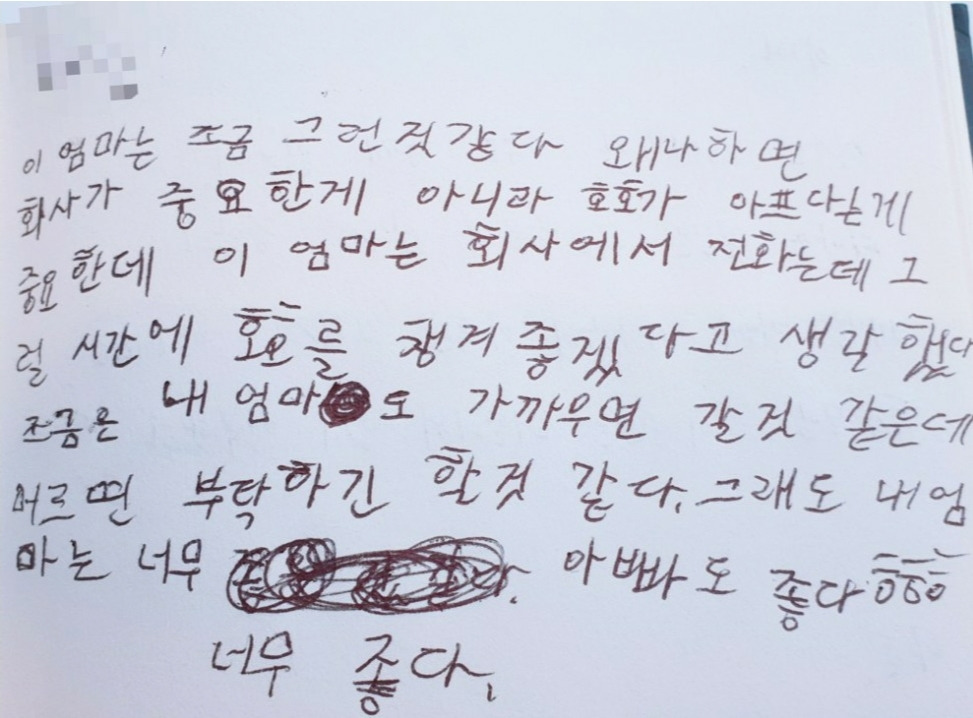 이 엄마는 조금 그런것 같다 왜나하면
회사가 중요한게 아니라 호호가 아프다는게
중요한데 이 엄마는 회사에서 전화는데 그
럴 시간에 호호를 챙겨 좋겠다고 생각 했다
조금은 내 엄마도 가까우면 갈것 같은데
머르면 부탁하긴 할것 같다. 그래도 내 엄
마는 너무 아빠도 좋다
너무 좋다.